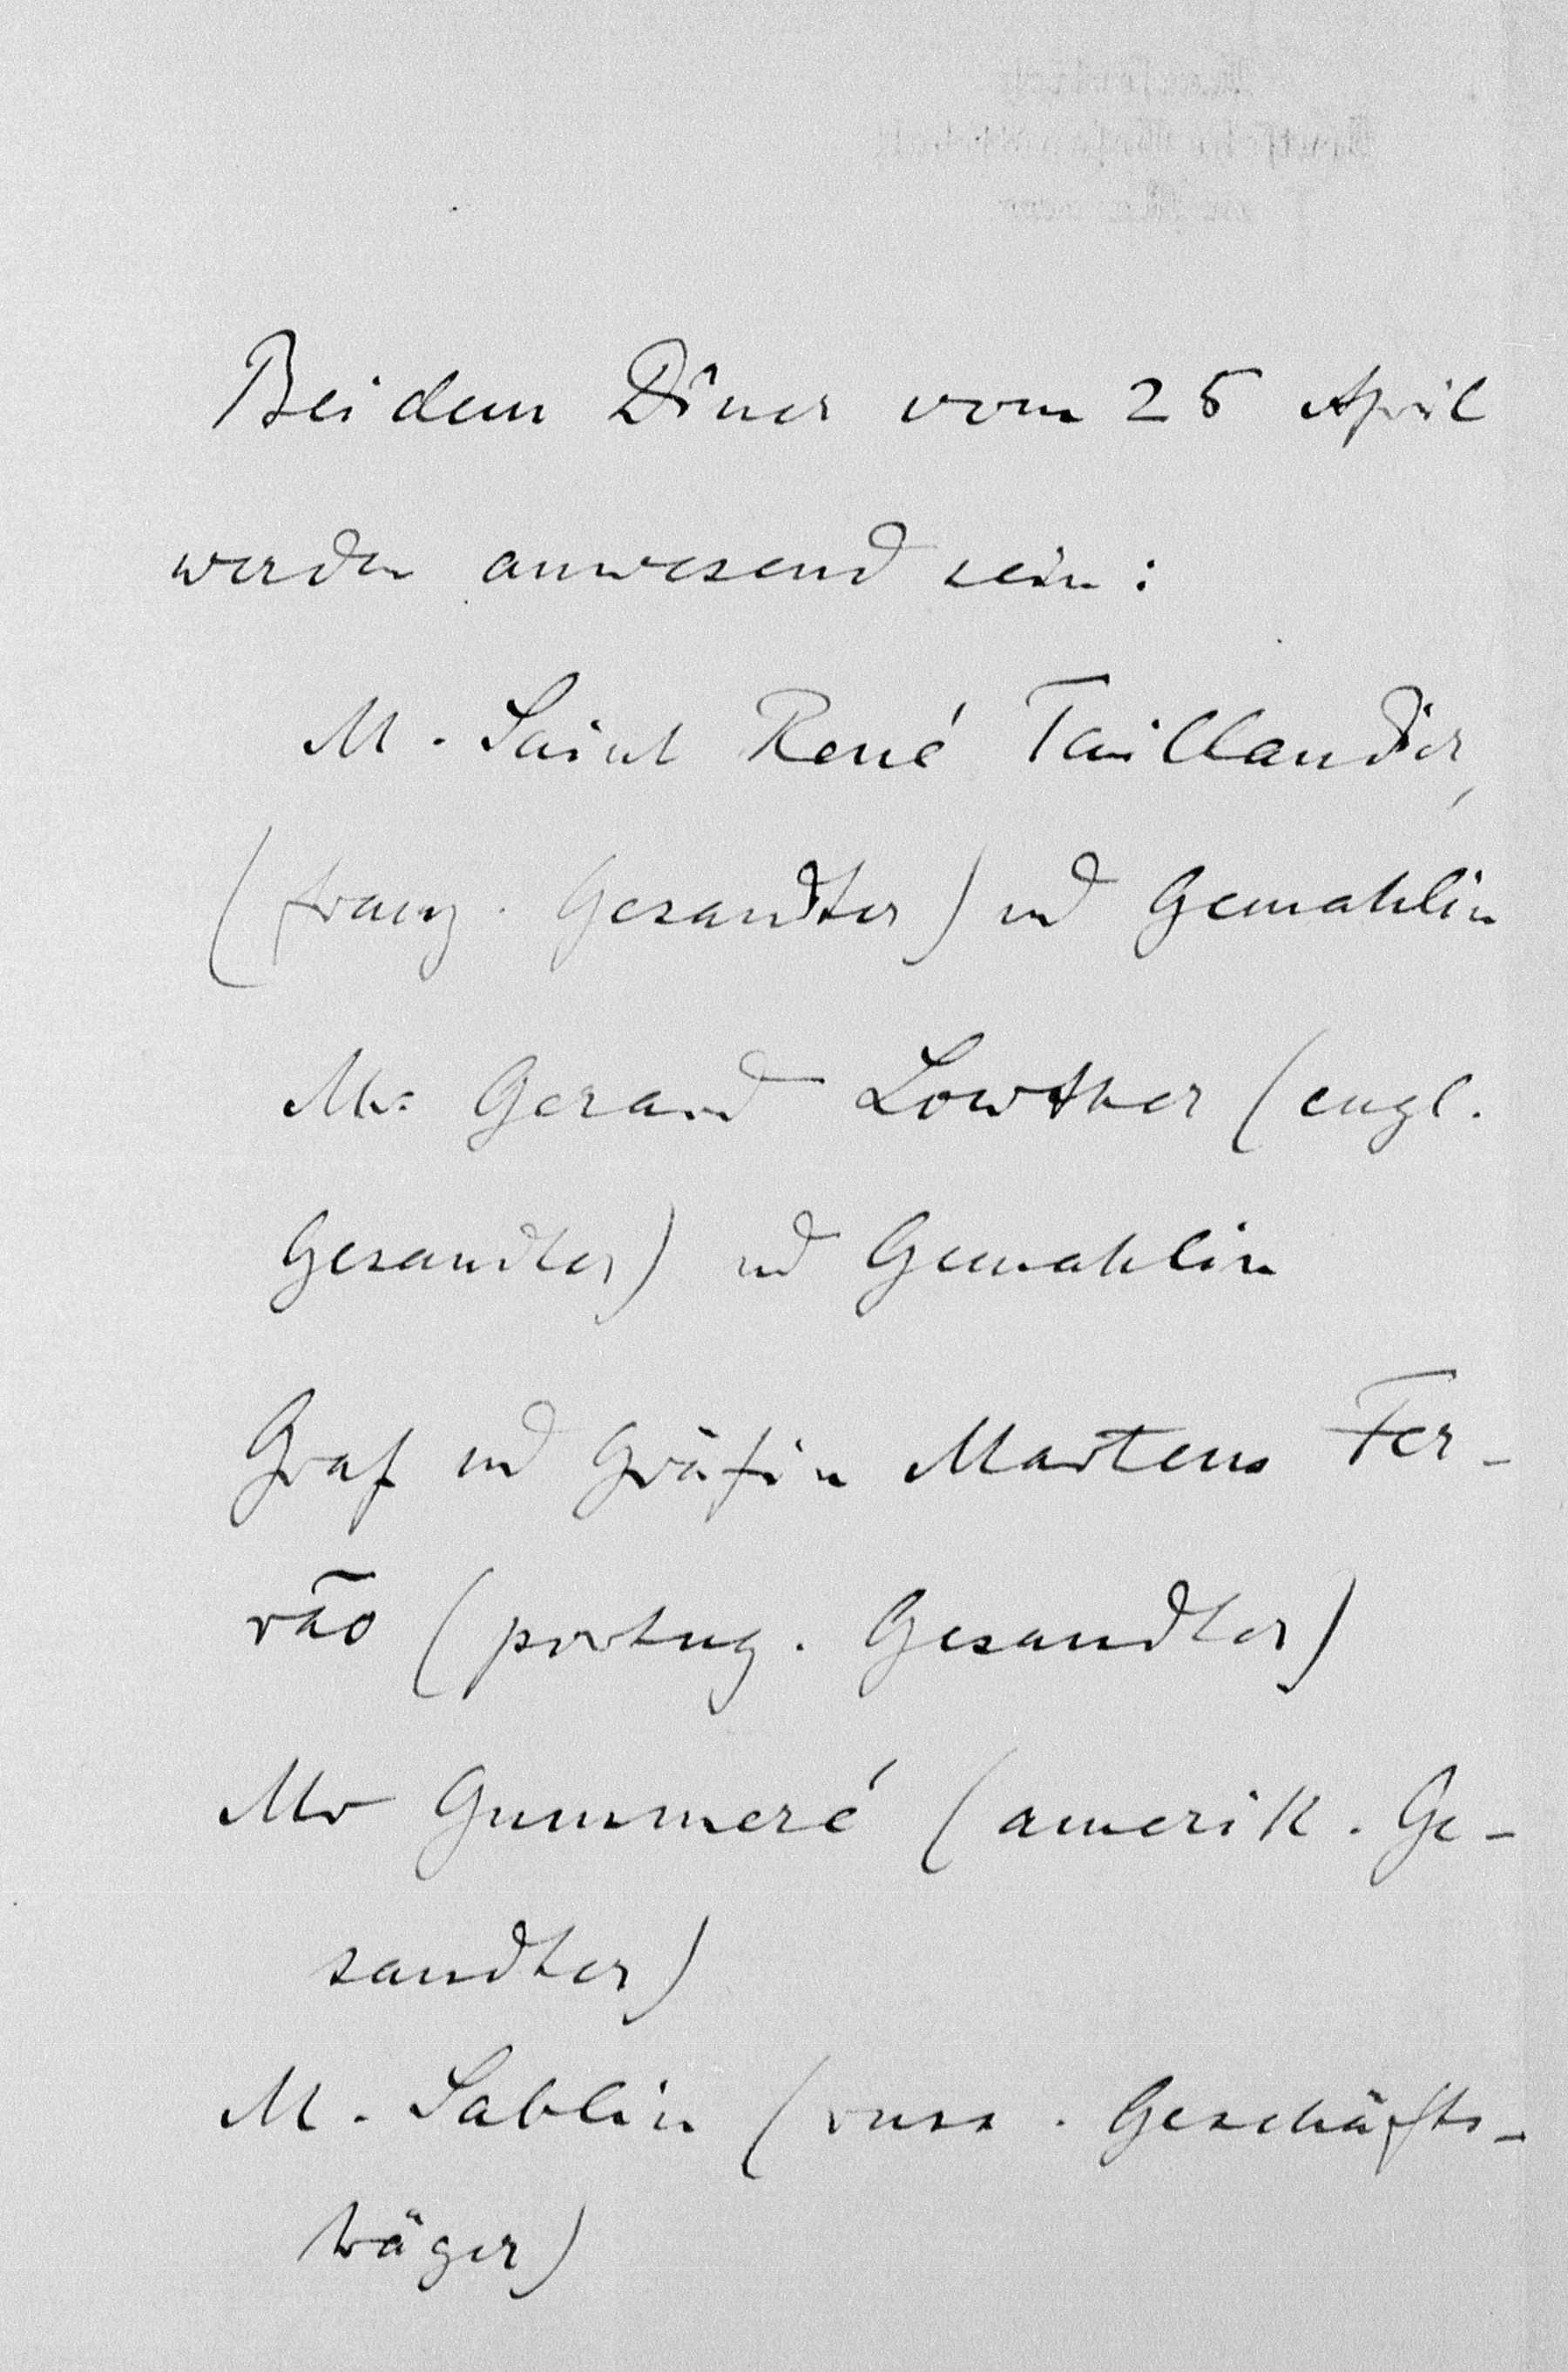 Bei dem Dîner vom 25 April
werden anwesend sein:
M. Saint René Taillandier,
(franz. Gesandter) und Gemahlin
Mr. Gerard Lowther (engl.
Gesandter) und Gemahlin
Graf und Gräfin Martens Fer-
rão (portug. Gesandter)
Mr Gummeré (amerik. Ge-
sandter)
M. Sablin (russ. Geschäfts-
träger)